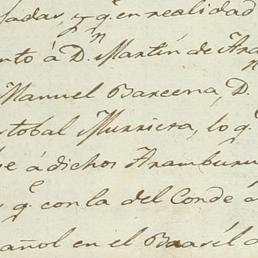 adas, y q.e en realidad
nto á D.n Martín de Ara
Manuel Barcena, D.n
stobal Murriera, lo q.e
se á dichos Aramburu
s q.e con la del Conde á
añol en el Brasil d